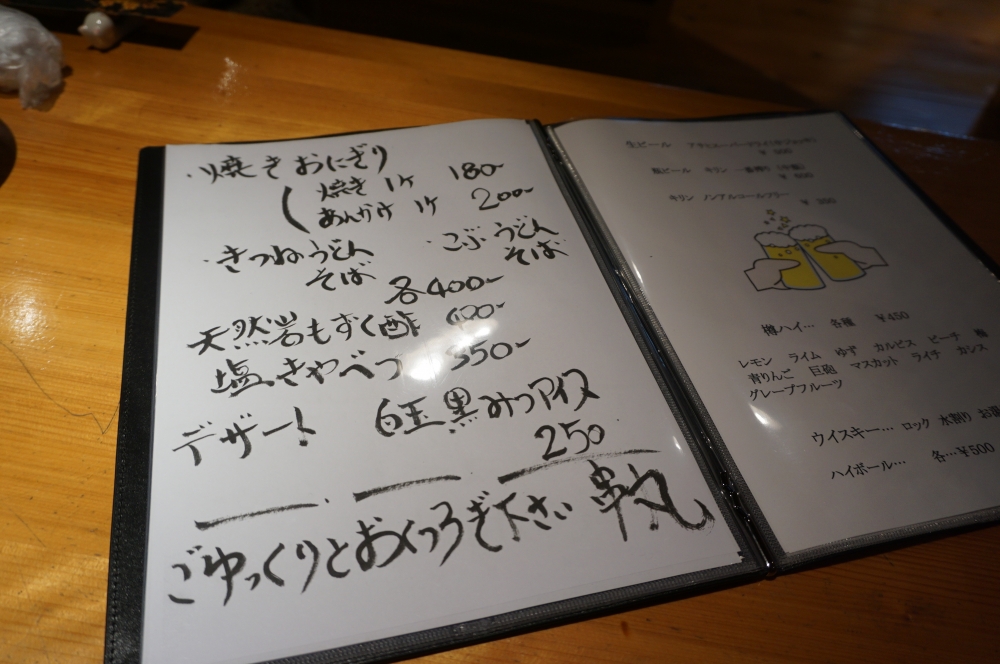 ・焼きおにぎり
焼き 1ケ 180-
あんかけ 1ケ 200-
・きつねうどん ・こぶうどん
そば そば
各400-
天然岩もずく酢 600-
塩きゃべつ 350-
デザート 白玉黒みつアイス
250
ごゆっくりとおくつろぎ下さい 串丸
生ビール アサヒスーパードライ
瓶ビール キリン 一番搾り
キリン ノンアルコールフリー
樽ハイ… 各種 ¥450
レモン ライム ゆず カルピス ピーチ 梅
青りんご 巨砲 マスカット ライチ カシス
グレープフルーツ
ウイスキー… ロック 水割り お湯
ハイボール… 各…¥500